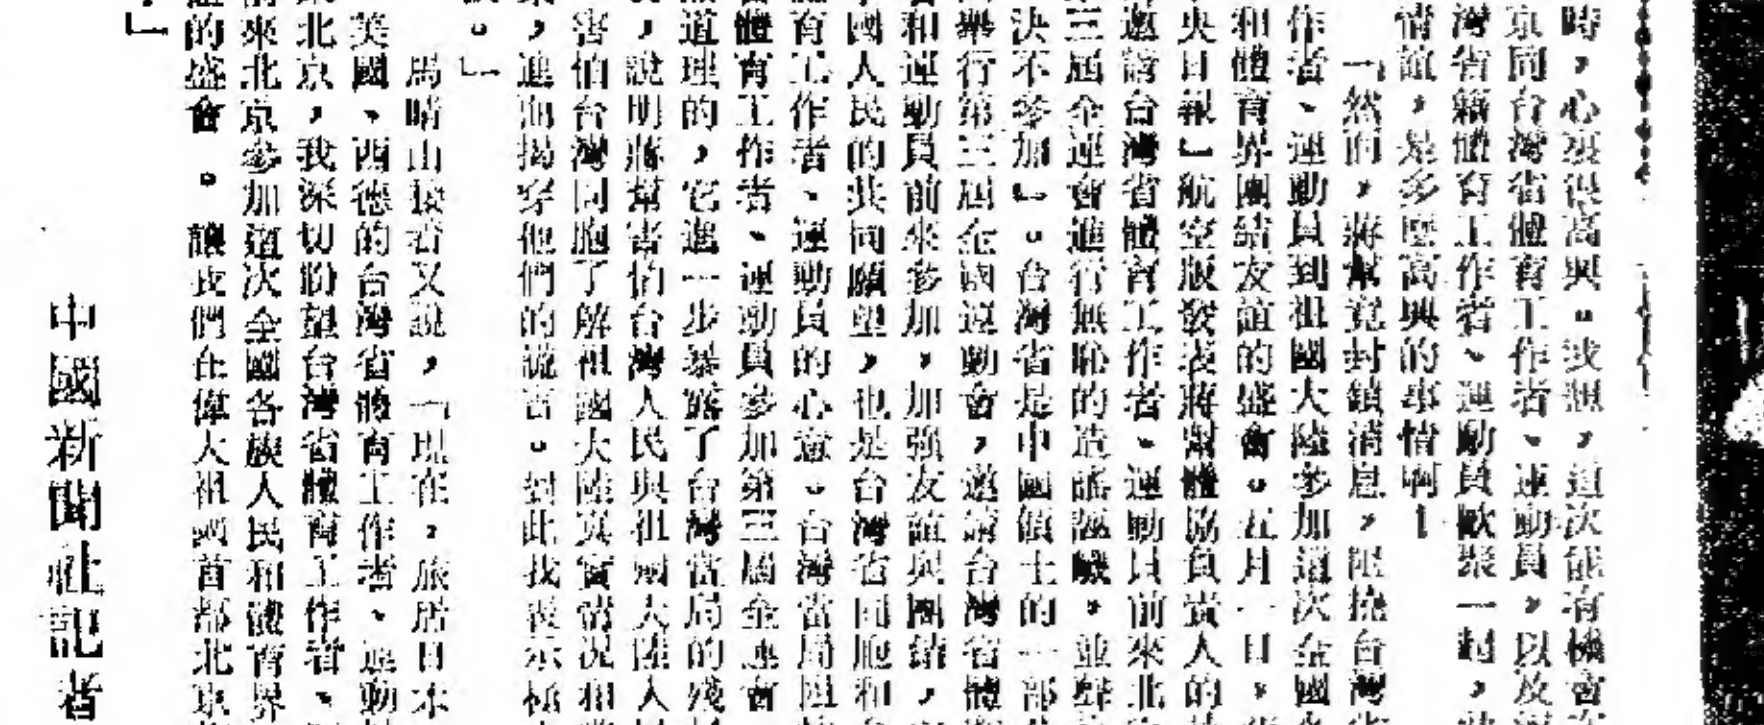 時，心裏很高興。我想，這次能有機會
京同台灣省體育工作者、運動員，以及
灣省籍體育工作者、運動員歡聚一起，
情誼，是多麼高興的事情啊！
「然而，蔣幫竟封鎖消息，阻撓台灣省
作者、運動員到祖國大陸參加這次全國
和體育界團結友誼的盛會。五月一日，
央日報」航空版發表蔣幫體協負責人的
邀請台灣省體育工作者、運動員前來北京
三屆全運會進行無恥的造謠誣衊，並聲
決不參加」。台灣省是中國領土的一部
舉行第三屆全國運動會，邀請台灣省體
和運動員前來參加，加強友誼與團結，
國人民的共同願望，也是台灣省同胞和
育工作者、運動員的心意。台灣當局阻
體育工作者、運動員參加第三屆全運會
道理的，它進一步暴露了台灣當局的殘
，說明蔣幫害怕台灣人民與祖國大陸人
害怕台灣同胞了解祖國大陸真實情況和
，進而揭穿他們的謊言。對此我表示極
。」
馬晴山接着又說，「現在，旅居日本
美國、西德的台灣省體育工作者、運動
北京，我深切盼望台灣省體育工作者、
來北京參加這次全國各族人民和體育界
的盛會。讓我們在偉大祖國首都北京
」
中國新聞社記者